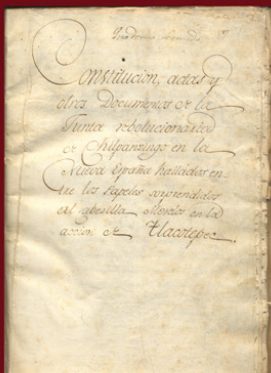 Constitucion, actas y
otros Documentos de la
Junta rebolucionaria
de Chilpanzingo en la
Nueva España hallados en-
tre los Papeles sorprendidos
al Cabecilla Morelos en la
accion de Tlacotepec.